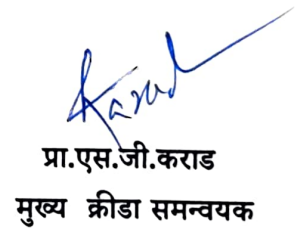 Karad
प्रा.एस.जी.कराड
मुख्य क्रीडा समन्वयक